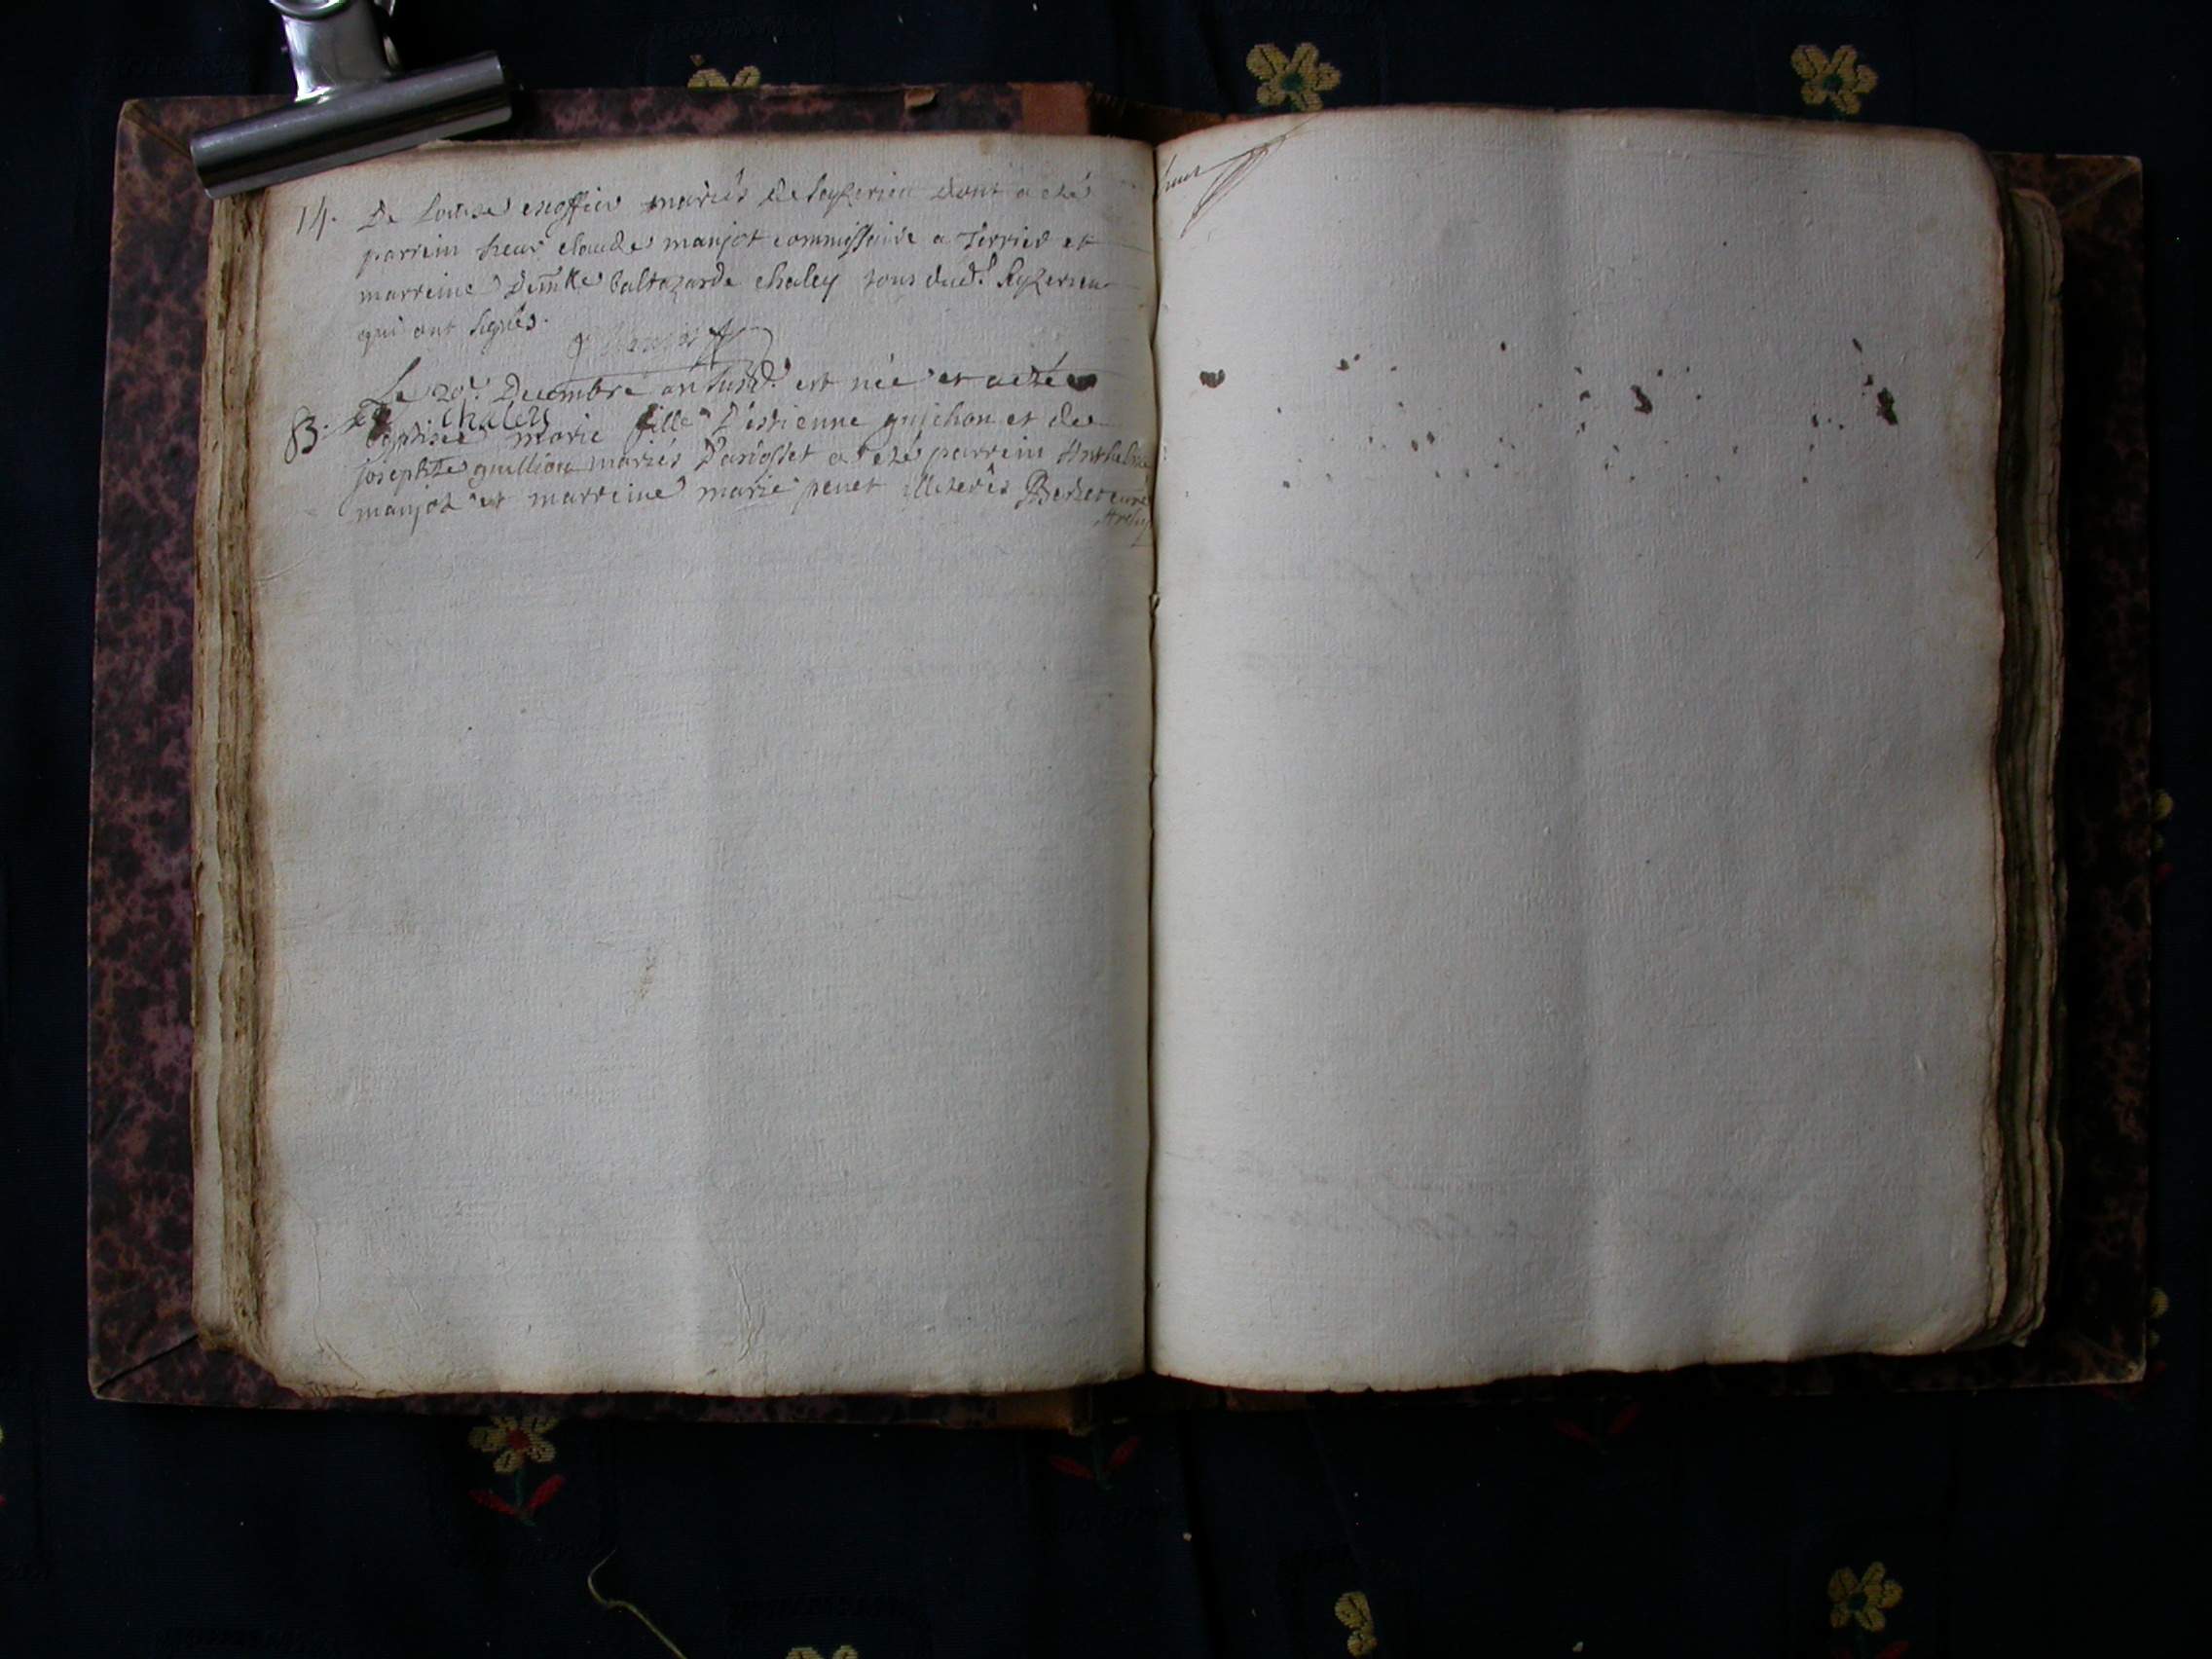 14. De Louise exoffier mariés de seyzerieu dont a eté
parrein sieur claude manjot commissaire a Terrier et
marreine Demlle baltazarde chaley tous dud.t Seyzerieu
qui ont signés.
manjot
Le 20e Decembre an susd.t est née et a eté
chaley
B. baptisée marie fille d'estienne gujchon et de
josephte guillion mariés d'avosset a eté parrein Anthelme
manjot et marreine marie penet illiterés